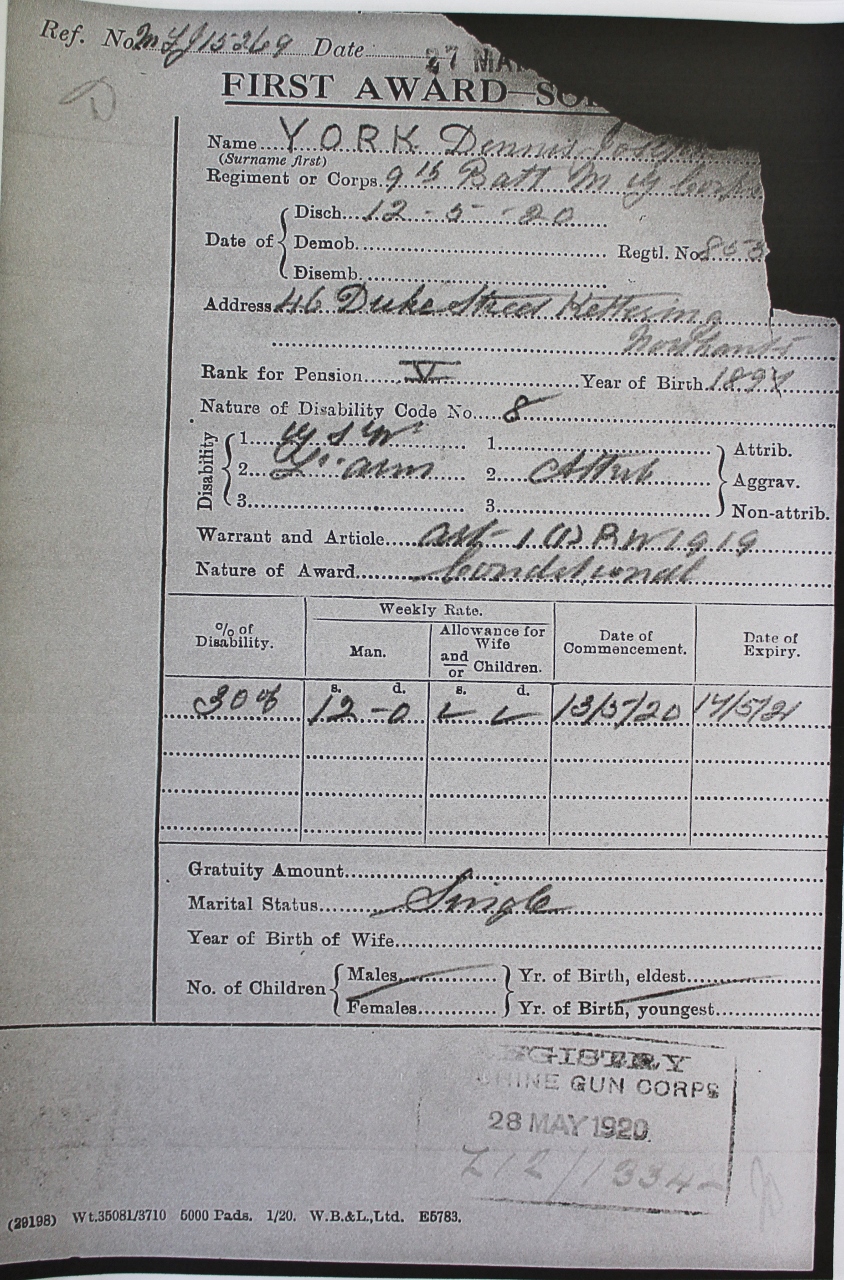 Ref. No M49/15269 Date 27 MA
FIRST AWARD—SO
Name YORK Dennis Joseph
(Surname first)
Regiment or Corps. 9th Batt M G Corps
Date of { Disch. 12 - 5 - 20
Demob.
Disemb.
Regtl. No 853
Address 46 Duke Street Kettering
Northants
Rank for Pension V Year of Birth 189
Nature of Disability Code No. 8
Disability { 1. G S W 1. } Attrib.
2. Lt. arm 2. Attrib Aggrav.
3. 3. Non-attrib.
Warrant and Article Art- 1 (1) RW 1919
Nature of Award Conditional
% of Disability. Weekly Rate. Man. Allowance for Wife and/or Children. Date of Commencement. Date of Expiry.
s. d. s. d.
30% 12 - 0 13/5/20 17/5/21
Gratuity Amount
Marital Status Single
Year of Birth of Wife
No. of Children { Males } Yr. of Birth, eldest
Females Yr. of Birth, youngest
EGISTRY
CHINE GUN CORPS
28 MAY 1920
Z12/1334
(29198) Wt.35081/3710 5000 Pads. 1/20. W.B.&L.,Ltd. E5783.